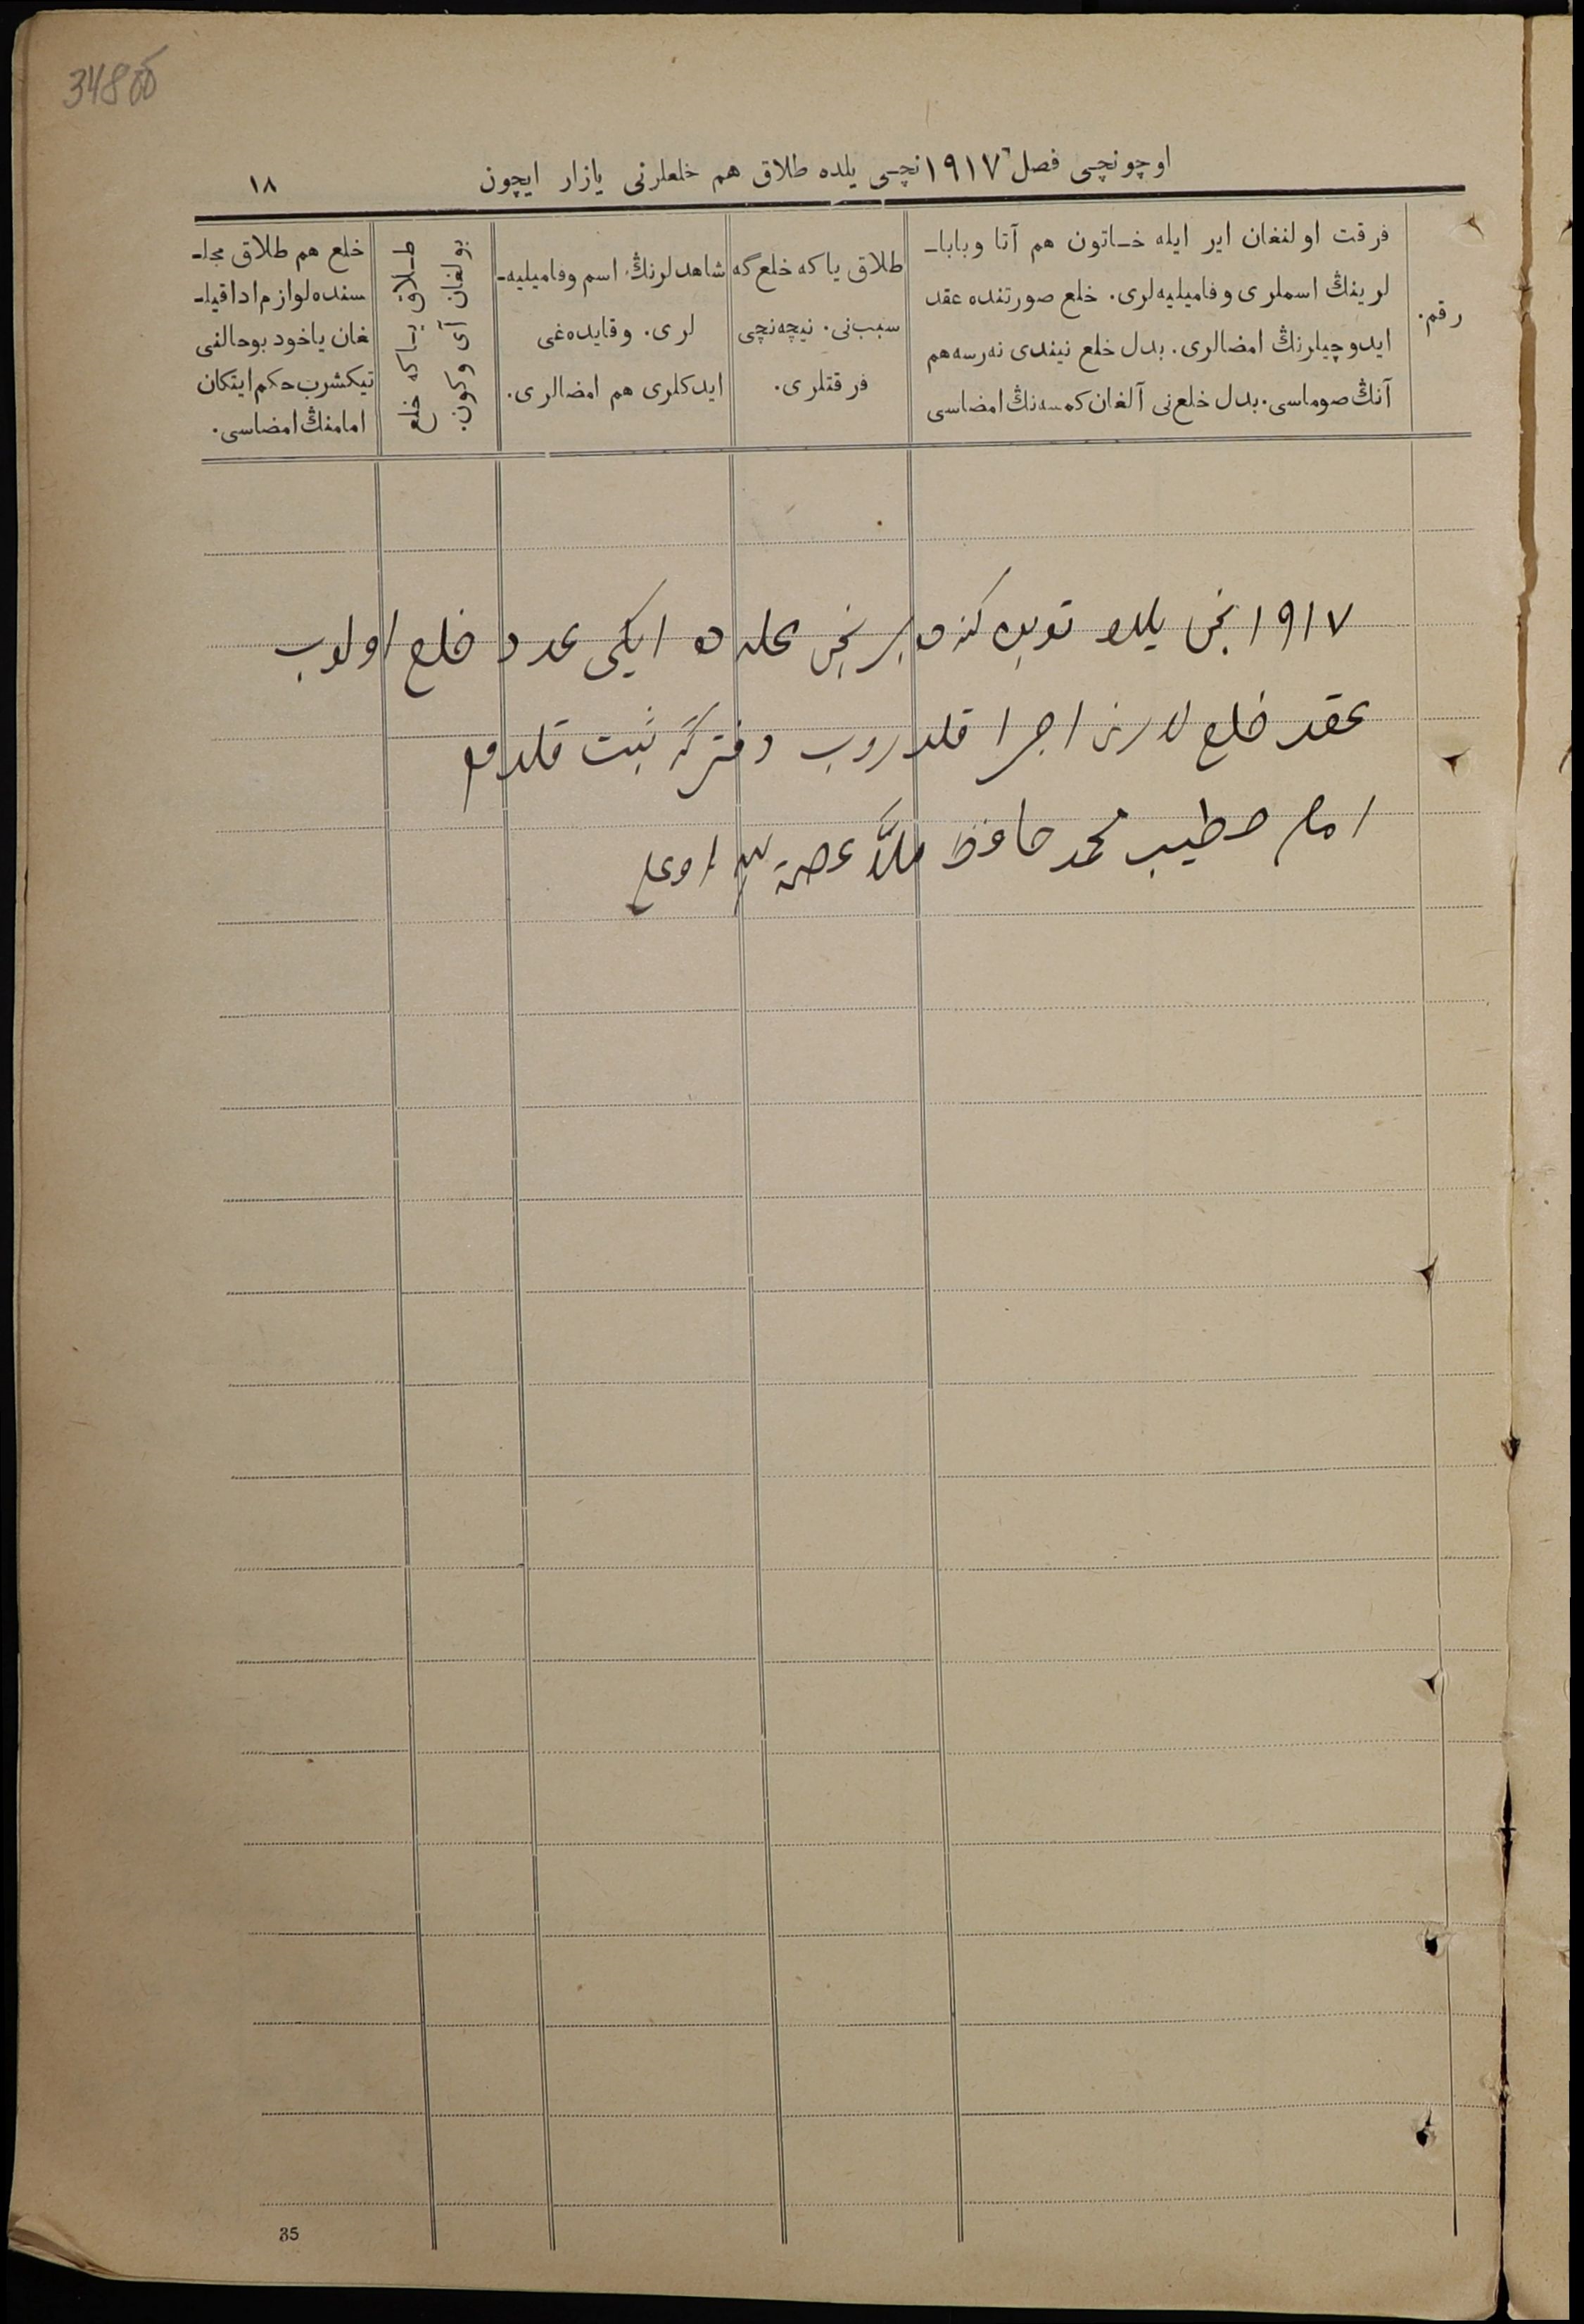 348 об
اوچونچی فصل ١٩١٧ نچی یلده طلاق هم خلعلرنی یازار ایچون
١٨
رقم.
فرقت اولنغان ایر ایله خـاتون هم آتا وبابا-
لرینڭ اسملری وفامیلیه‌لری. خلع صورتنده عقد
ایدوچیلرنڭ امضالری. بدل خلع نیندی نه‌رسه هم
آنڭ صوماسی. بدل خلع نی آلغان کمسه‌نڭ امضاسی
طلاق یاکه خلع گه
سبب نی. نیچه‌نچی
فرقتلری.
شاهدلرنڭ اسم وفامیلیه-
لری. وقایده‌غی
ایدکلری هم امضالری.
طـلاق یـاکه خلع
بولغان آی وکون.
خلع هم طلاق مجلـ
سنده لوازم ادا قیلـ
غان یاخود بوحالنی
تیکشرب حکم ایتکان
امامنڭ امضاسی.
١٩١٧ نچی یلده برنچی محله ده ایکی عدد خلع اولوب
عقد خلع لارنی اجرا قلدروب دفترگه ثبت قلدم
امام خطیب محمد حافظ ملا
35